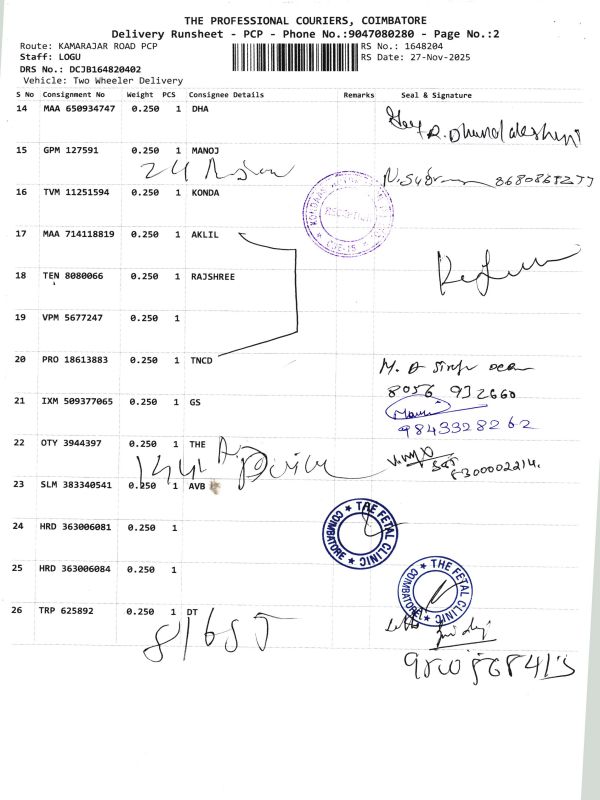 THE PROFESSIONAL COURIERS, COIMBATORE
Delivery Runsheet - PCP - Phone No.:9047080280 - Page No.:2
Route: KAMARAJAR ROAD PCP
RS No.: 1648204
Staff: LOGU
RS Date: 27-Nov-2025
DRS No.: DCJB164820402
Vehicle: Two Wheeler Delivery
S No Consignment No Weight PCS Consignee Details Remarks Seal & Signature
14 MAA 650934747 0.250 1 DHA
15 GPM 127591 0.250 1 MANOJ
24
8680865277
16 TVM 11251594 0.250 1 KONDA
17 MAA 714118819 0.250 1 AKLIL
18 TEN 8080066 0.250 1 RAJSHREE
19 VPM 5677247 0.250 1
20 PRO 18613883 0.250 1 TNCD
8056 932660
21 IXM 509377065 0.250 1 GS
9843328262
22 OTY 3944397 0.250 1 THE
23 SLM 383340541 0.250 1 AVB
24 HRD 363006081 0.250 1
THE FETAL CLINIC
COIMBATORE
25 HRD 363006084 0.250 1
THE FETAL CLINIC
COIMBATORE
26 TRP 625892 0.250 1 DT